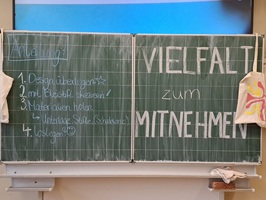 Anleitung:
1. Design überlegen
2. mit Bleistift skizzieren!
3. Materialien holen
↳ Unterlage, Stifte,
4. loslegen
VIELFALT
zum
MITNEHMEN